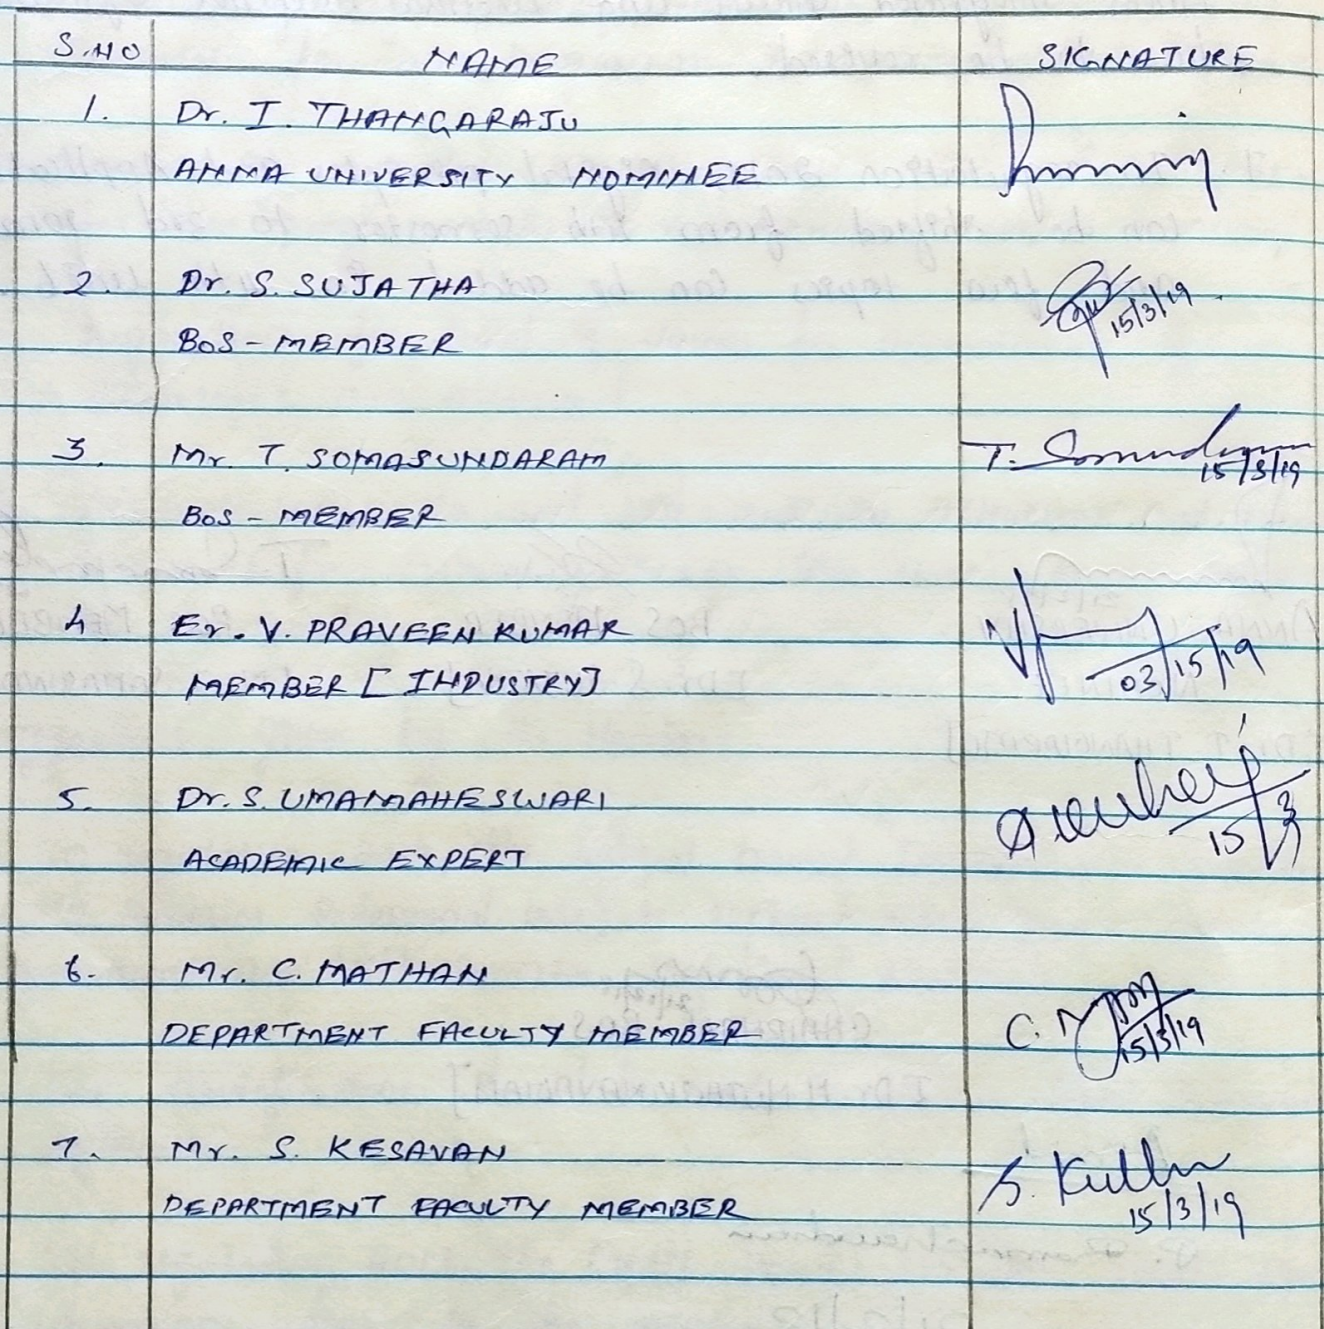 S.NO NAME SIGNATURE
1. Dr. I. THANGARAJU
ANNA UNIVERSITY NOMINEE
2. Dr. S. SUJATHA
15/3/19
BoS - MEMBER
3. Mr. T. SOMASUNDARAM T. Somasundaram
15/3/19
BoS - MEMBER
4. Er. V. PRAVEEN KUMAR
MEMBER [INDUSTRY] 03/15/19
5. Dr. S. UMAMAHESWARI
15/3
ACADEMIC EXPERT
6. Mr. C. MATHAN
DEPARTMENT FACULTY MEMBER C. 15/3/19
7. Mr. S. KESAVAN S.
DEPARTMENT FACULTY MEMBER 15/3/19